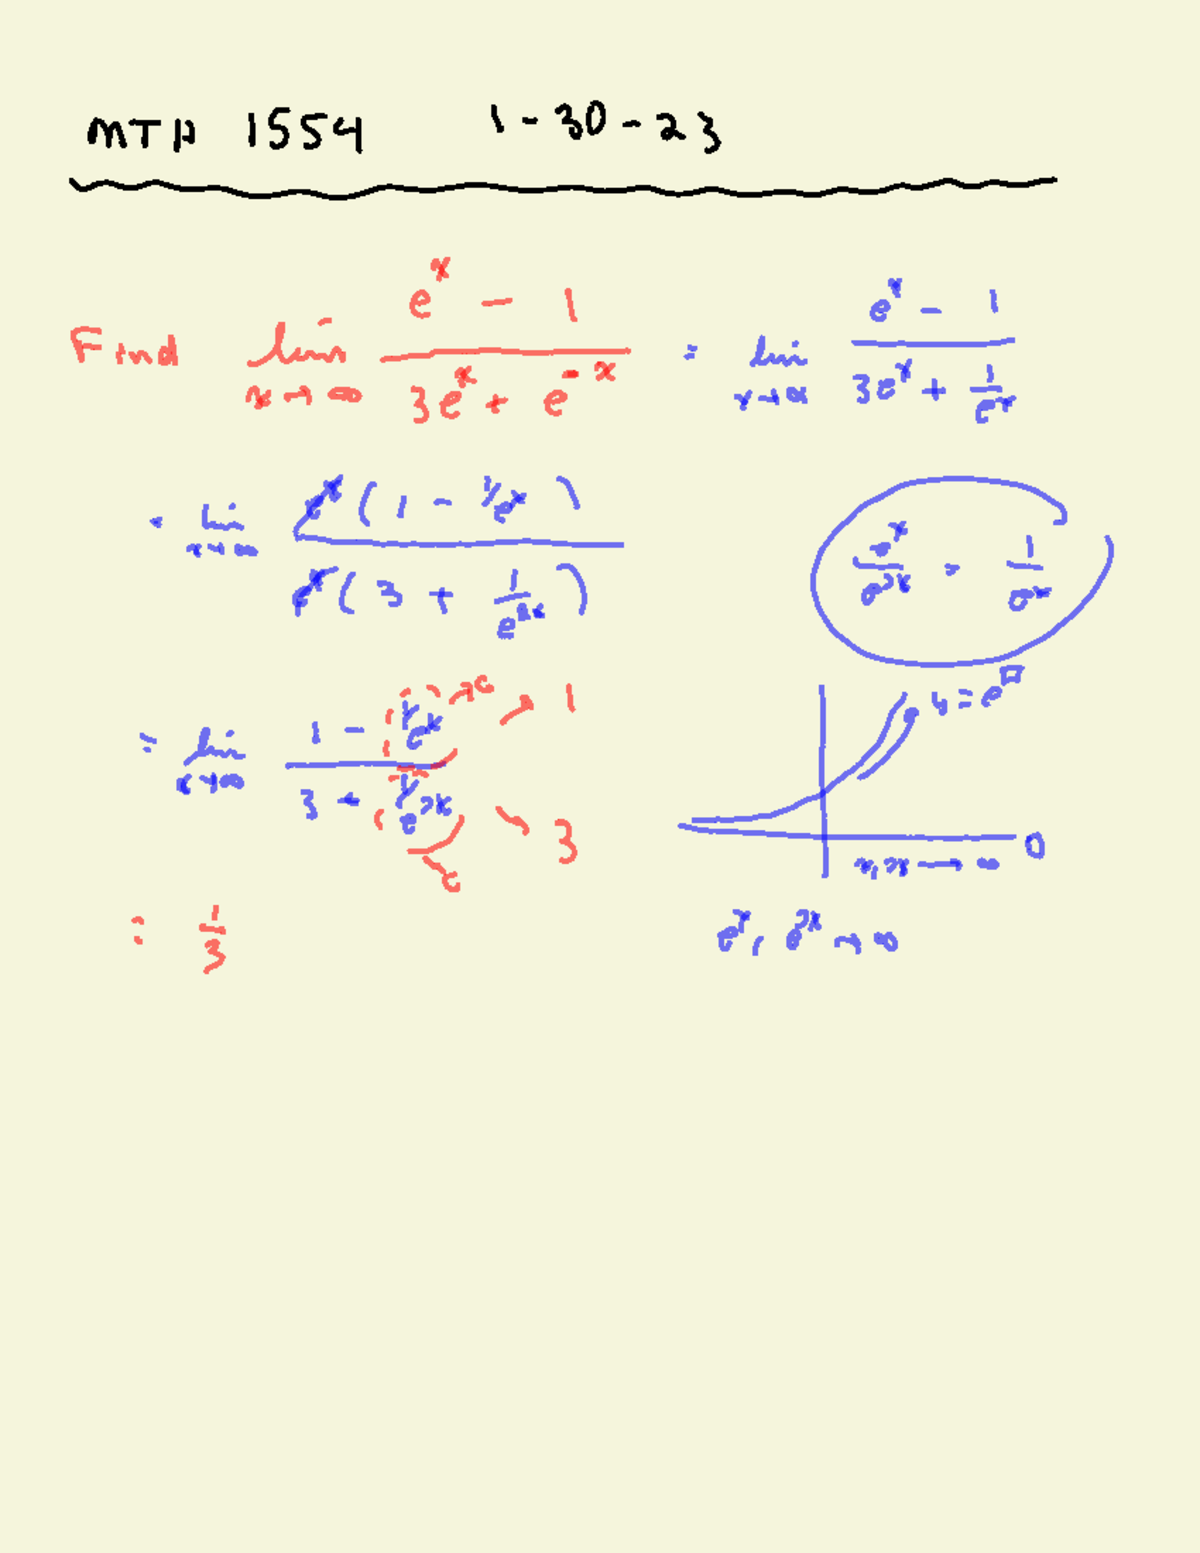 MTH 1554 1-30-23
Find lim x→∞ (e^x - 1)/(3e^x + e^-x) = lim x→∞ (e^x - 1)/(3e^x + 1/e^x)
= lim x→∞ e^x(1 - 1/e^x)/e^x(3 + 1/e^2x)
e^x/e^2x = 1/e^x
= lim x→∞ (1 - 1/e^x)/(3 + 1/e^2x) →0 → 1 → 3 0
y = e^□
0
x, 2x → ∞
e^x, e^2x → ∞
= 1/3